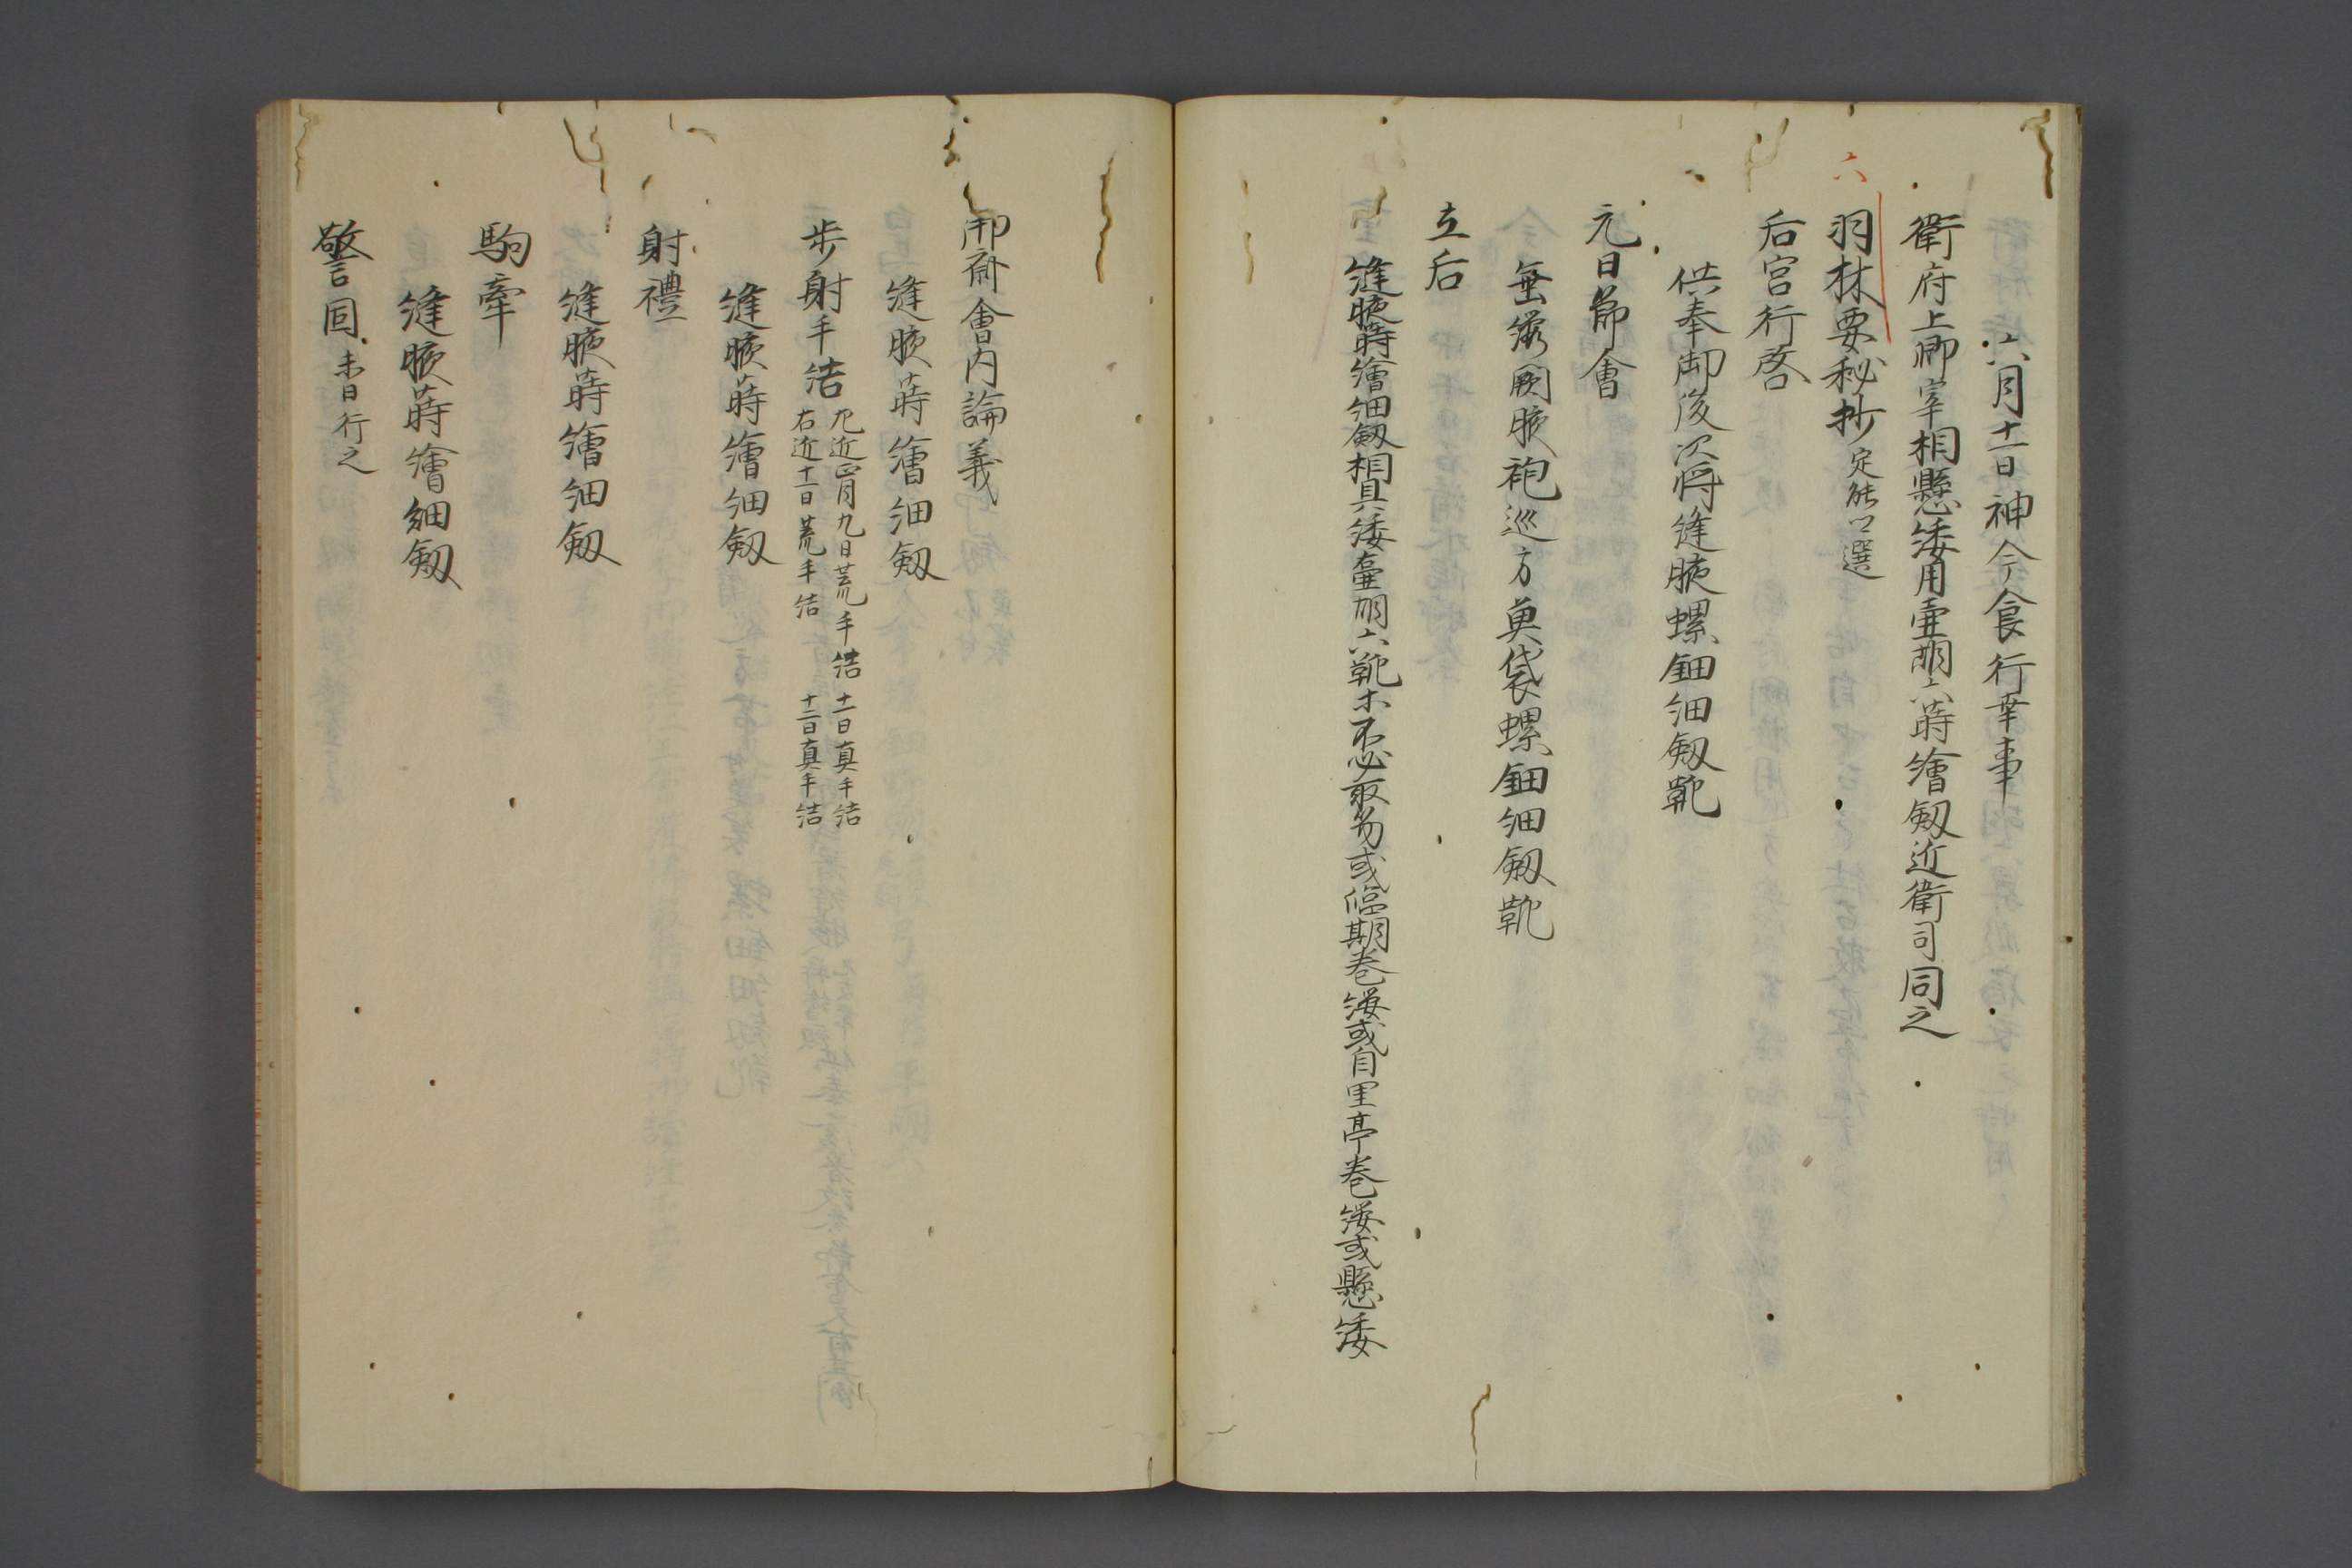 六月十一日神今食行幸事
衛府上卿宰相懸緌用壷胡六蒔繪釼近衛司同之
六
羽林要秘抄 定能卿選
后宮行啓
供奉御後次将縫腋螺鈿細釼靴
元日節會
垂纓闕腋袍巡方魚袋螺鈿細釼靴
立后
縫腋蒔繪細釼相具緌壷胡六靴木不必取弓或臨期巻纓或自里亭巻纓或懸緌
御斎會内論義
縫腋蒔繪細釼
歩射手結 左近正月九日荒手結 十一日真手結
右近十一日荒手結 十二日真手結
縫腋蒔繪細釼
射禮
縫腋蒔繪細釼
駒牽
縫腋蒔繪細釼
警固 未日行之